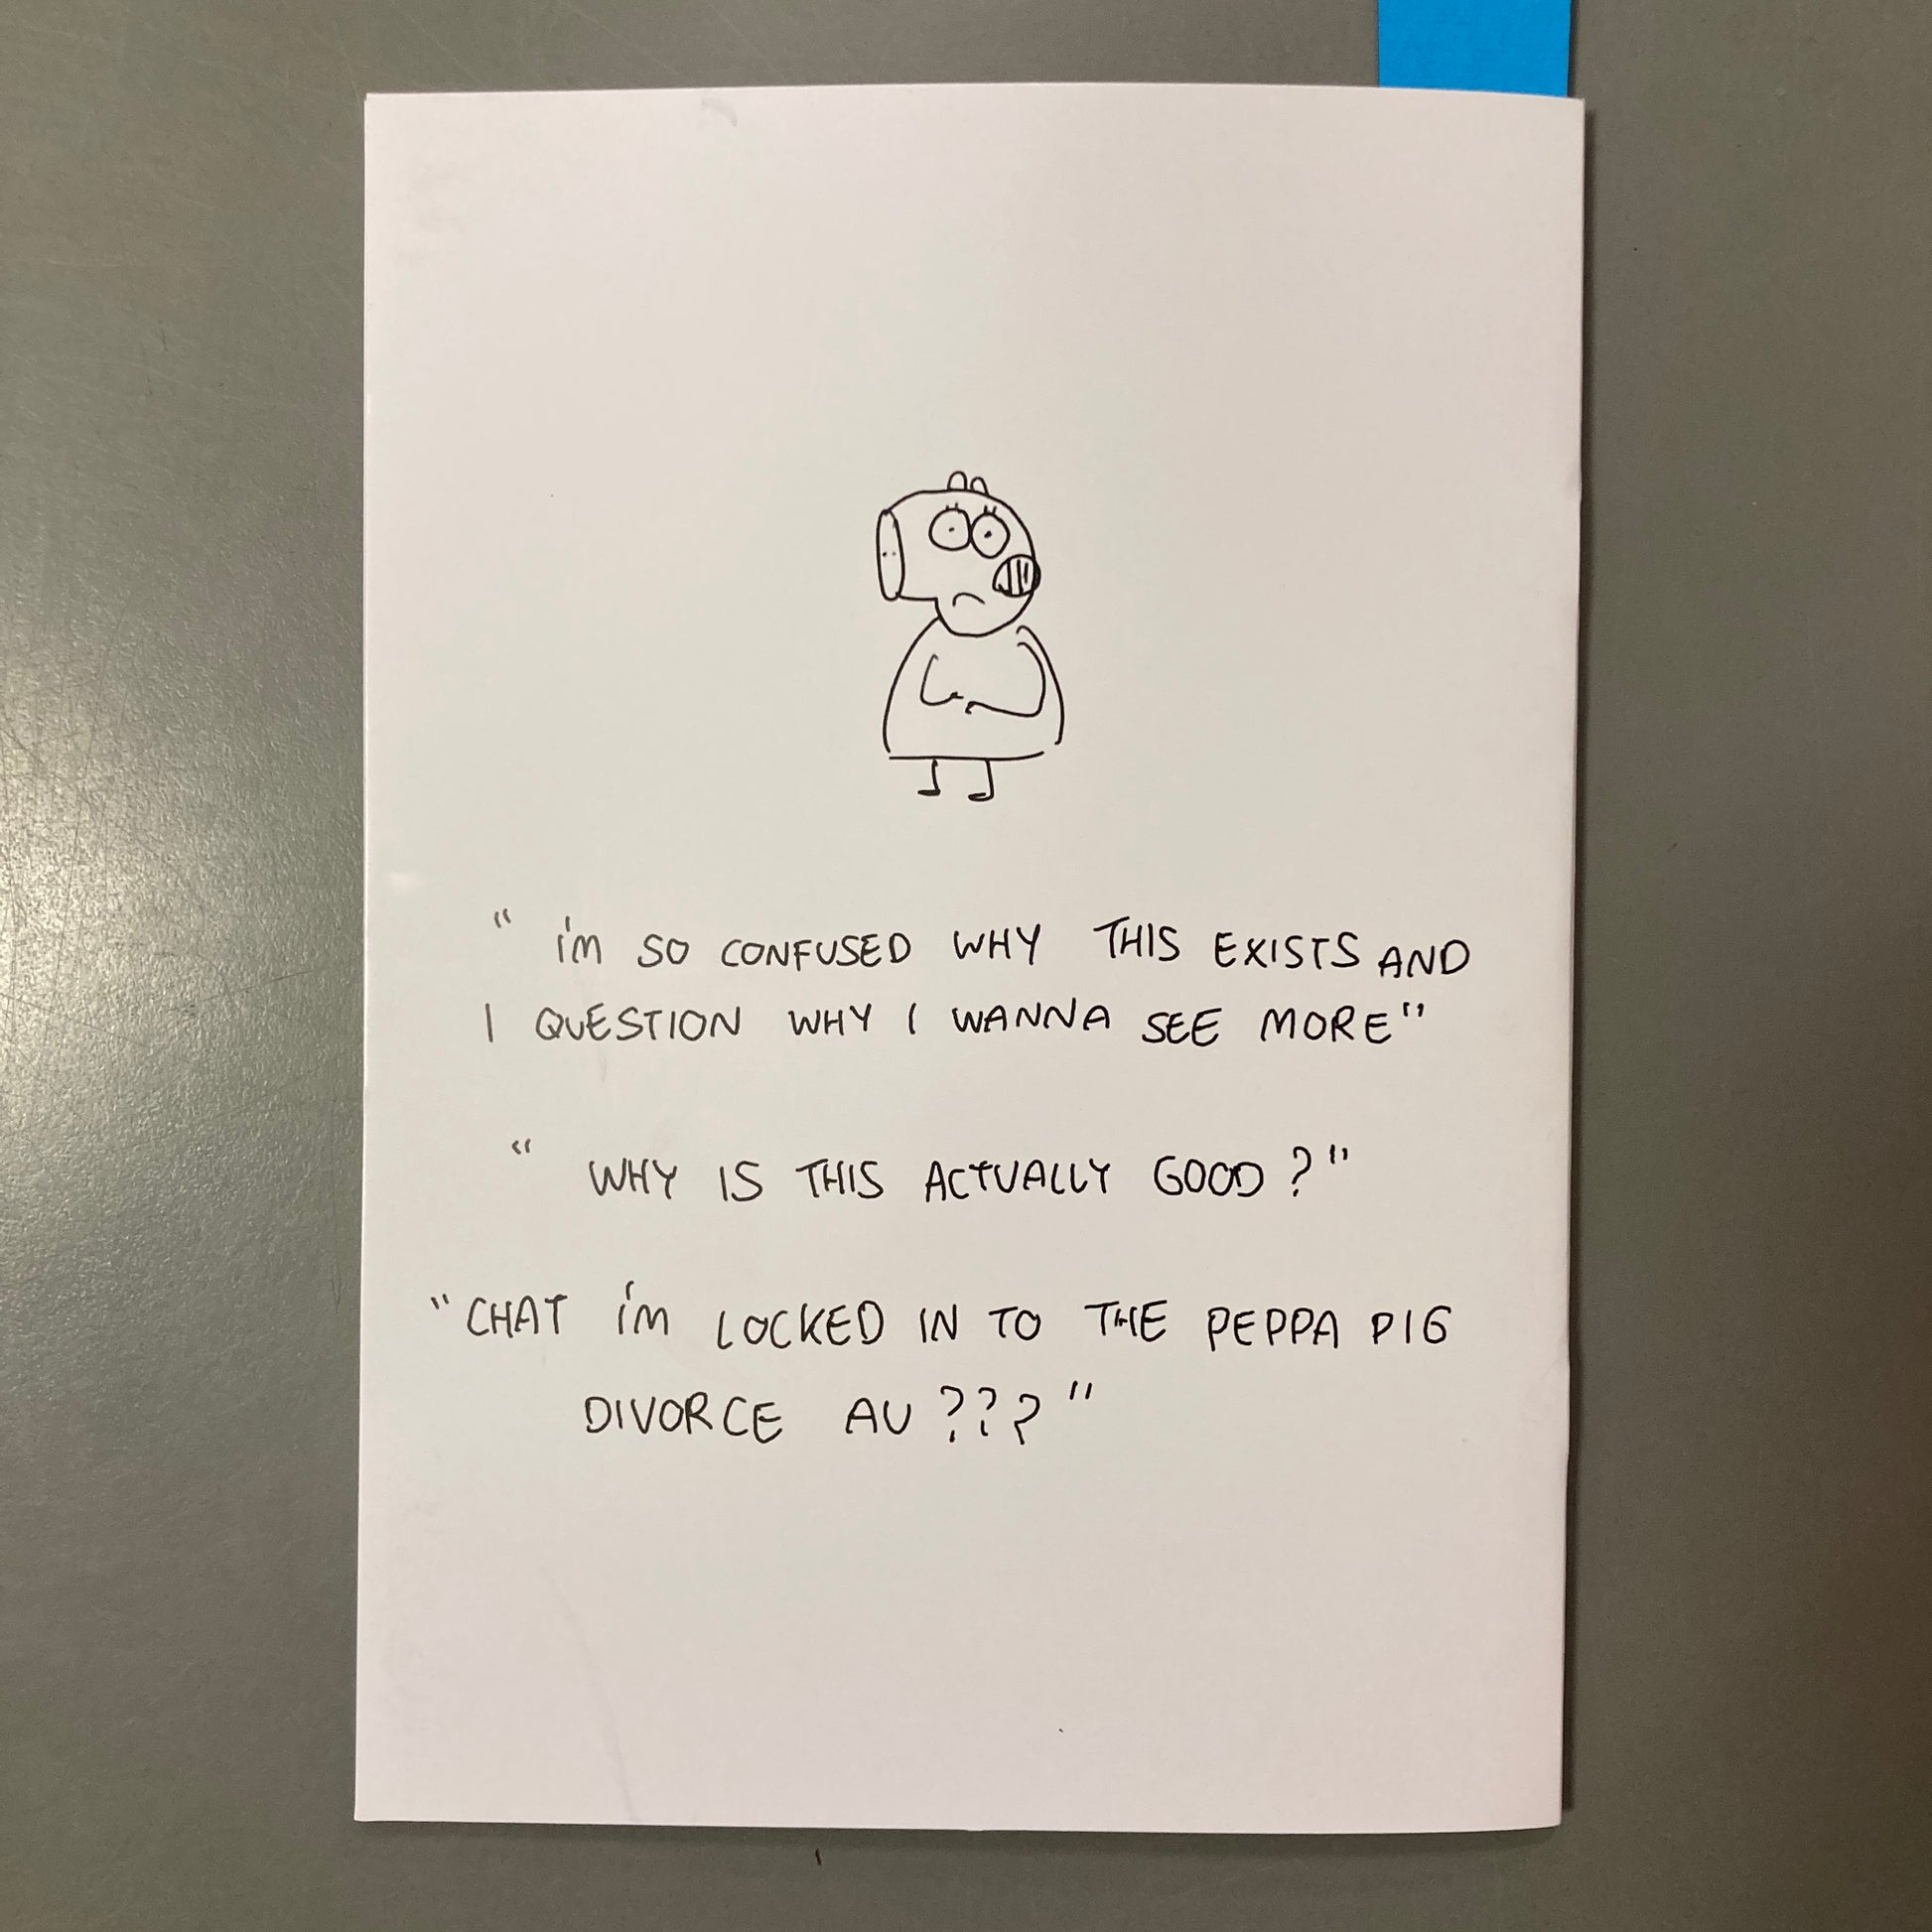 " i'm SO CONFUSED WHY THIS EXISTS AND
I QUESTION WHY I WANNA SEE MORE"
" WHY IS THIS ACTUALLY GOOD?"
"CHAT i'm LOCKED IN TO THE PEPPA PIG
DIVORCE AU???"